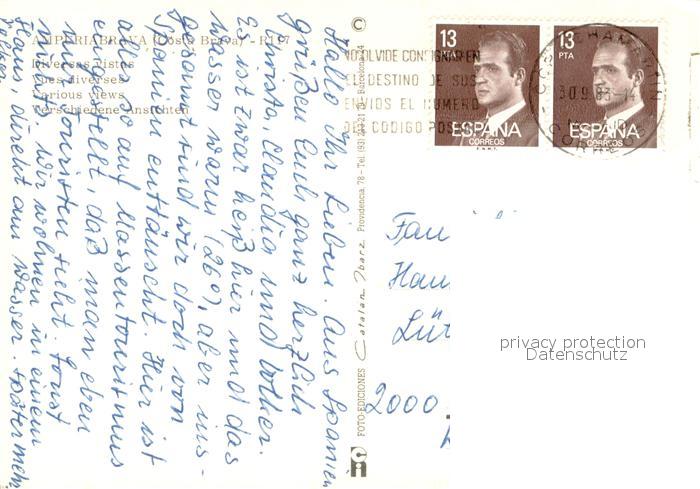 AMPURIABRAVA (Costa Brava) -
Diversas vistas
Vues diverses
Various views
Verschiedene Ansichten
Hallo Ihr Lieben. Aus Spanien
grüßen Euch ganz herzlich
Christa, Claudia und Volker.
Es ist zwar heiß hier und das
Wasser warm (26°), aber ins-
gesamt sind wir doch von
Spanien enttäuscht. Hier ist
alles so auf Massentourismus
eingestellt, daß man eben
nur Touristen sieht. Sonst
wir wohnen in einem
Haus direkt am Wasser. Später mehr
Volker
FOTO-EDICIONES Catalan Ibarz Providencia, 78 - Tel. (93) Barcelona
©
ci
NO OLVIDE CONSIGNAR EN
EL DESTINO DE SUS
ENVIOS EL NUMERO
DEL CODIGO POS
13
PTA
ESPAÑA
CORREOS
F.N.M.T.
13
PTA
ESPAÑA
CORREOS
CHAMARTIN
30.9.83-14
Fam
Hau
Lüt
2000
privacy protection
Datenschutz